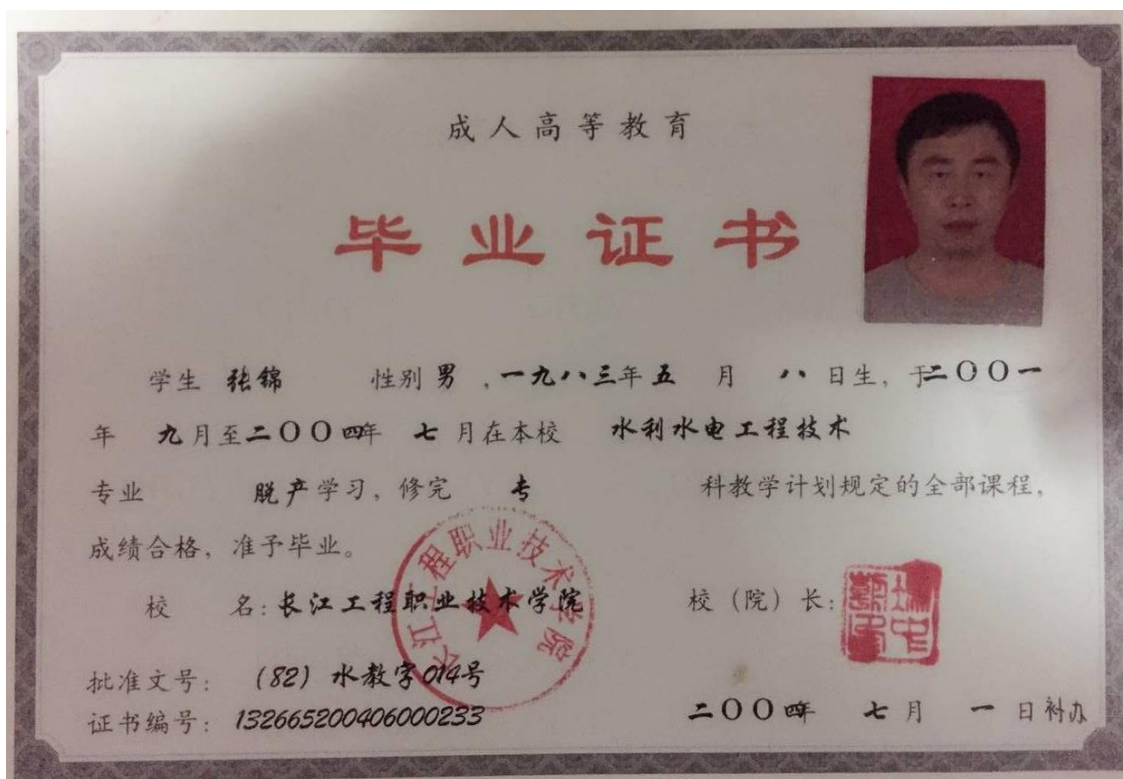 成人高等教育
毕业证书
学生 张锦 性别 男 ,一九八三年 五 月 八 日生, 于二〇〇一
年 九月至二〇〇四年 七 月在本校 水利水电工程技术
专业 脱产学习, 修完 专 科教学计划规定的全部课程,
成绩合格, 准予毕业。
校 名: 长江工程职业技术学院 校(院)长:
长江工程职业技术学院
批准文号: (82)水教字014号
证书编号: 132665200406000233 二〇〇四年 七 月 一 日 补办